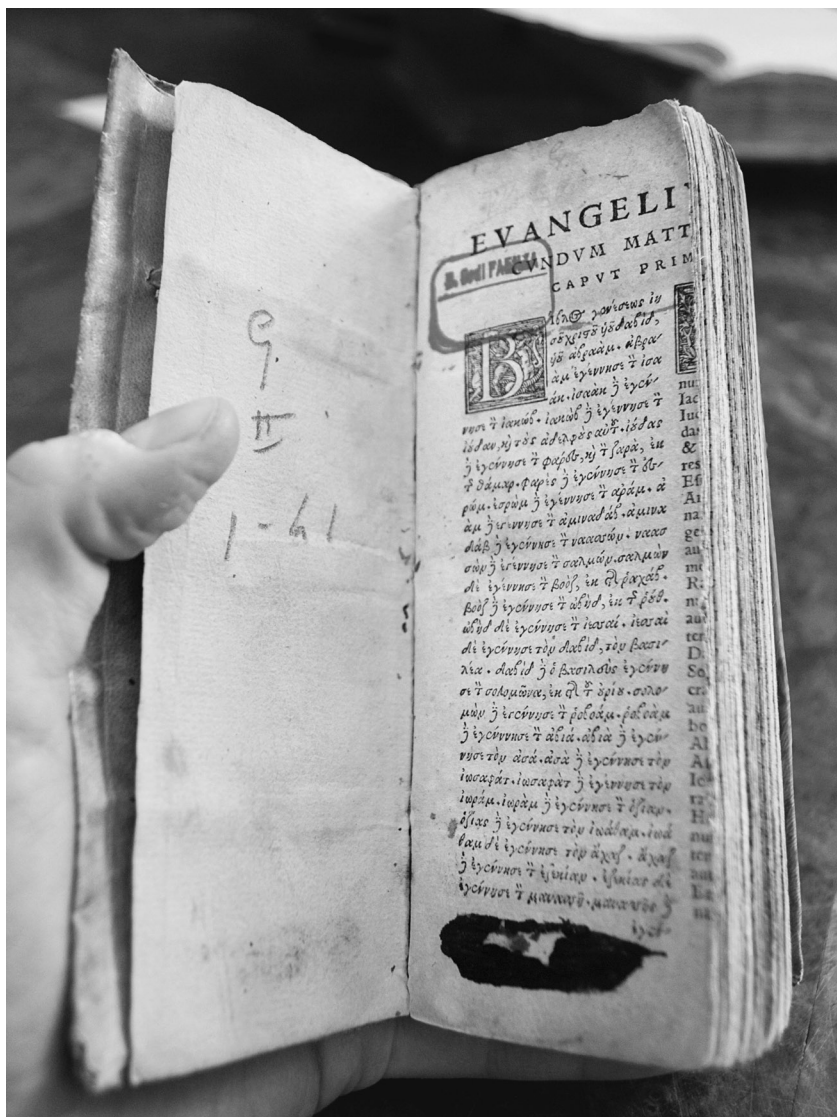 G.
II
1-41
EVANGELI
CVNDVM MATT
CAPVT PRIM
Βίβλος γενέσεως ἰη
σοῦ χριστοῦ ὑοῦ δαβίδ,
ὑοῦ ἀβραάμ. ἀβρα-
ὰμ ἐγέννησε τ̀ ἰσα
άκ. ἰσαὰκ δ̀ ἐγέν-
νησε τ̀ ἰακώβ. ἰακὼβ δ̀ ἐγέννησε τ̀
ἰούδαν, καὶ τοὺς ἀδελφοὺς αὐτ̃. ἰούδας
δ̀ ἐγέννησε τ̀ φαρὲς, καὶ τ̀ ζαρὰ, ἐκ
τ̃ θάμαρ. φαρὲς δ̀ ἐγέννησε τ̀ ἐσ-
ρώμ. ἐσρὼμ δ̀ ἐγέννησε τ̀ αράμ. ἀ
ὰμ δ̀ ἐγέννησε τ̀ ἀμιναδάβ. ἀμινα
δὰβ δ̀ ἐγέννησε τ̀ ναασσών. ναασ
σὼν δ̀ ἐγέννησε τ̀ σαλμών. σαλμὼν
δὲ ἐγέννησε τ̀ βοὸζ, ἐκ τ̃ ῥαχάβ.
βοὸζ δ̀ ἐγέννησε τ̀ ὠβὴδ, ἐκ τ̃ ῥούθ.
ὠβὴδ δὲ ἐγέννησε τ̀ ἰεσσαί. ἰεσσαὶ
δὲ ἐγέννησε τὸν δαβὶδ, τὸν βασι-
λέα. δαβὶδ δ̀ ὁ βασιλεὺς ἐγέννη
σε τ̀ σολομῶνα, ἐκ τ̃ τ̃ οὐρίου. σολο-
μὼν δ̀ ἐγέννησε τ̀ ῥοβοάμ. ῥοβοὰμ
δ̀ ἐγέννησε τ̀ ἀβιά. ἀβιὰ δ̀ ἐγέν-
νησε τὸν ἀσά. ἀσὰ δ̀ ἐγέννησε τὸν
ἰωσαφάτ. ἰωσαφὰτ δ̀ ἐγέννησε τὸν
ἰωράμ. ἰωρὰμ δ̀ ἐγέννησε τ̀ ὀζίαν.
ὀζίας δ̀ ἐγέννησε τὸν ἰωάθαμ. ἰωά
θαμ δὲ ἐγέννησε τὸν ἄχαζ. ἄχαζ
δ̀ ἐγέννησε τ̀ ἐζεκίαν. ἐζεκίας δὲ
ἐγέννησε τ̀ μανασσῆ. μανασσῆς δ̀
ἐγέν-